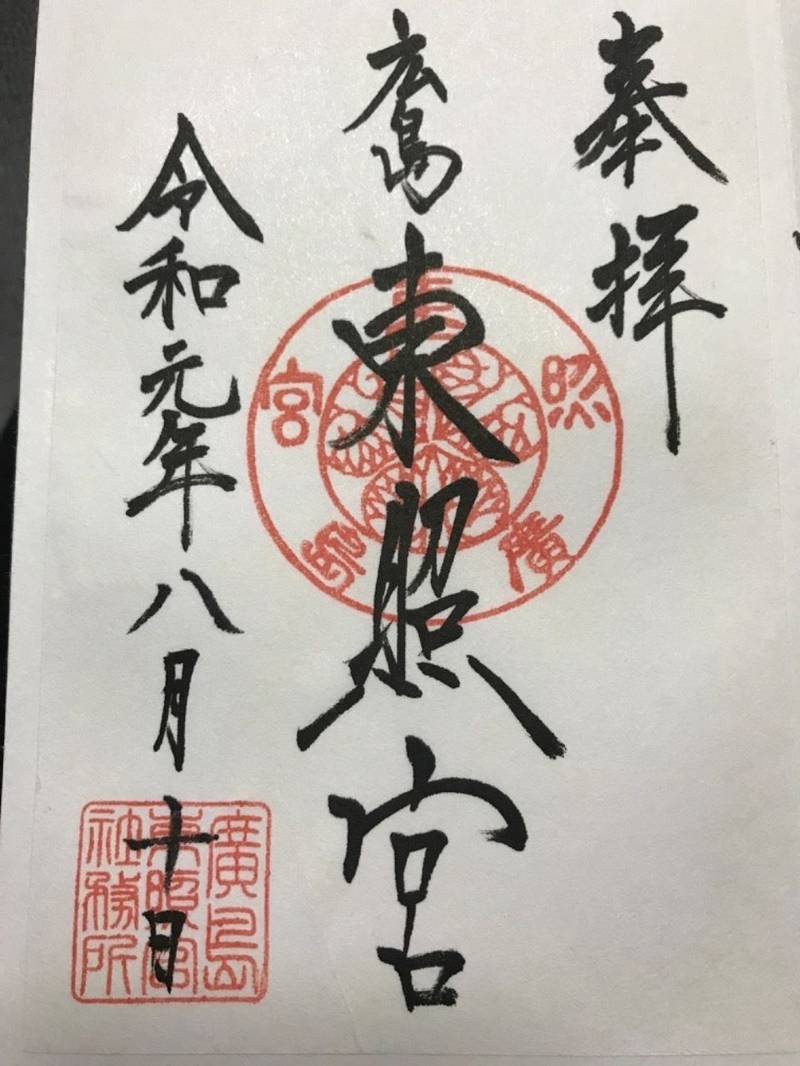 奉拝
広島東照宮
令和元年八月十日
東照宮
廣島
廣島
東照宮
社務所